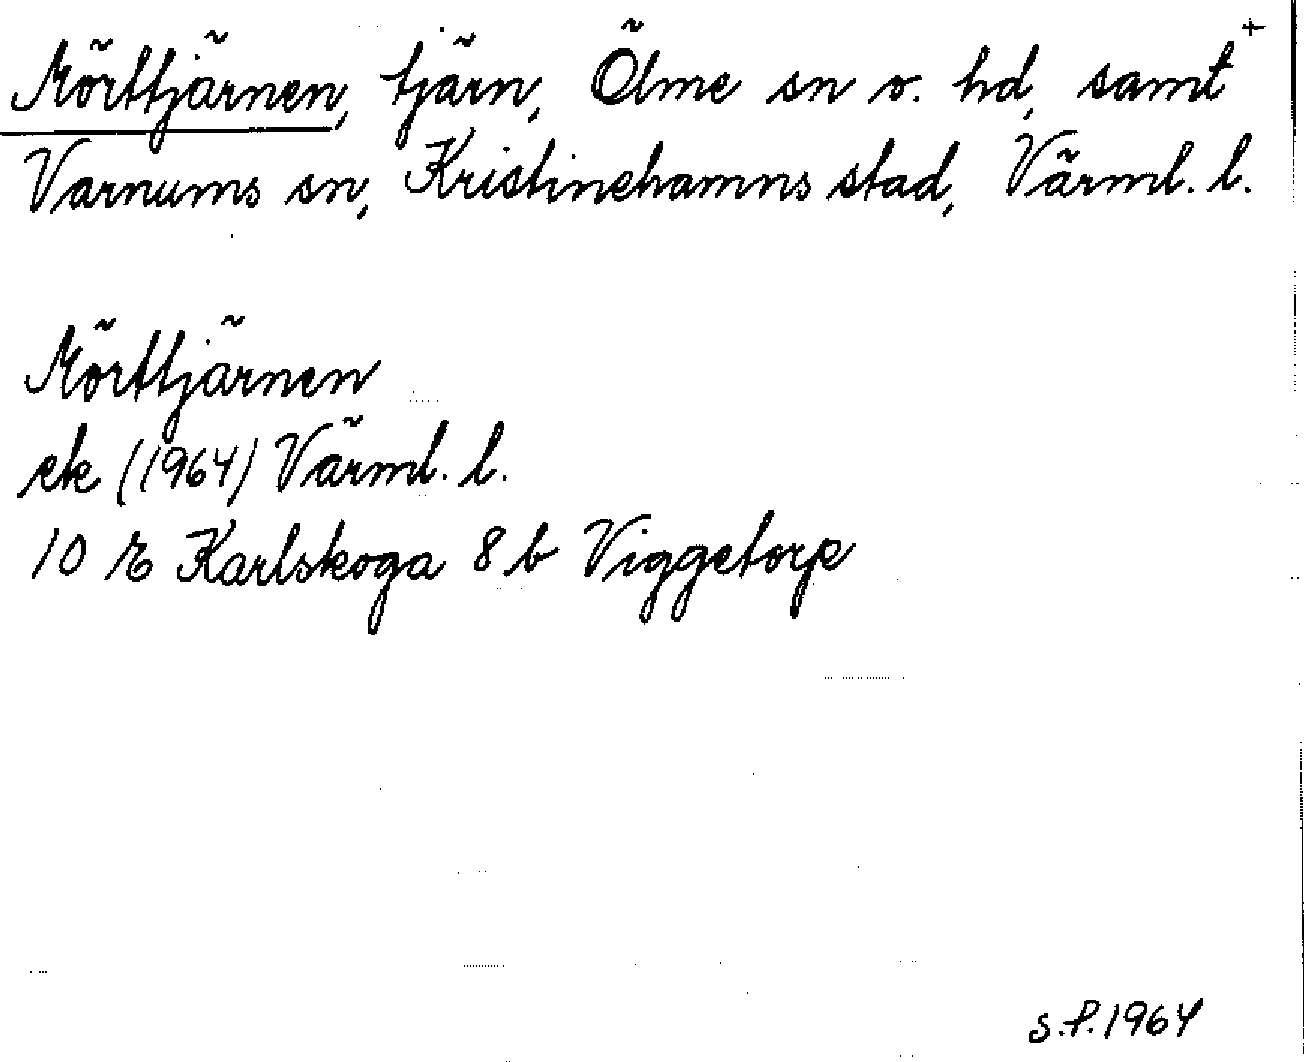 Mörttjärnen, tjärn, Ölme sn o. hd, samt +
Varnums sn, Kristinehamns stad, Värml. l.
Mörttjärnen
ek (1964) Värml. l.
10 E Karlskoga 8 b Viggetorp
S.P. 1964